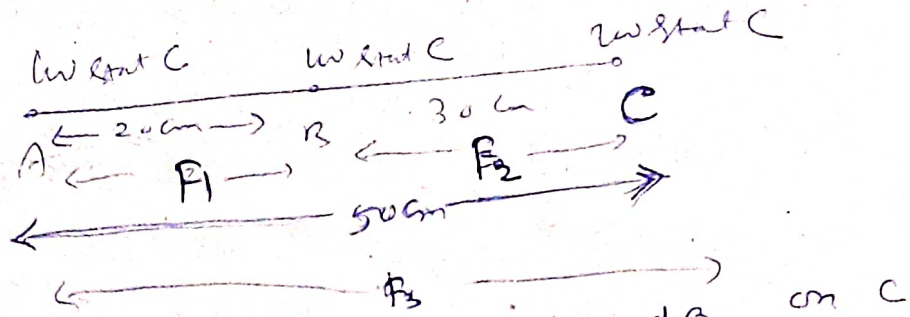 100 Stat C 100 Stat C 200 Stat C
A 20 cm B 30 cm C
F1 F2
50 cm
F3
on C